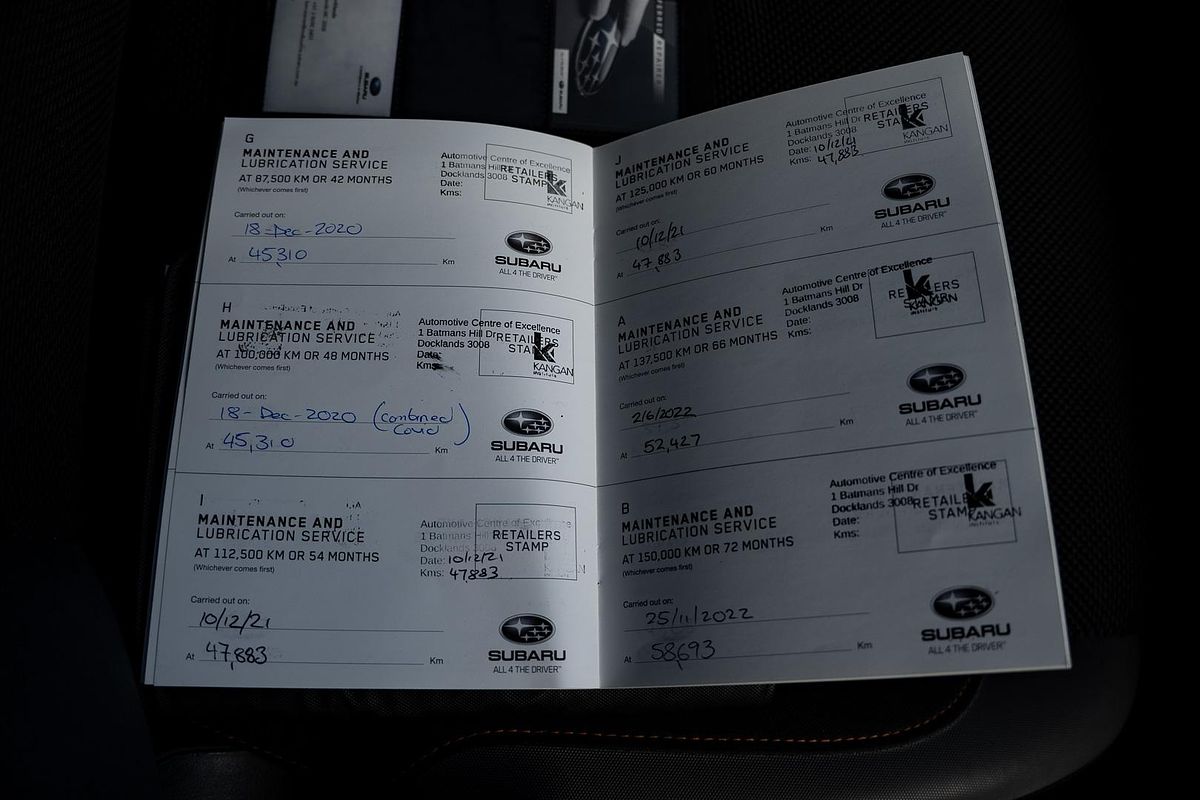 SUBARU
G
MAINTENANCE AND
LUBRICATION SERVICE
AT 87,500 KM OR 42 MONTHS
(Whichever comes first)
Automotive Centre of Excellence
1 Batmans Hill
Docklands 3008
Date:
Kms:
RETAILERS
STAMP
KANGAN
Carried out on:
18-Dec-2020
At 45,310 Km
SUBARU
ALL 4 THE DRIVER
H
MAINTENANCE AND
LUBRICATION SERVICE
AT 100,000 KM OR 48 MONTHS
(Whichever comes first)
Automotive Centre of Excellence
1 Batmans Hill Dr
Docklands 3008
Date:
Kms:
RETAILERS
STAMP
KANGAN
Institute
Carried out on:
18-Dec-2020 (combined
Covid)
At 45,310 Km
SUBARU
ALL 4 THE DRIVER
I
MAINTENANCE AND
LUBRICATION SERVICE
AT 112,500 KM OR 54 MONTHS
(Whichever comes first)
Automotive Centre of Excellence
1 Batmans Hill
Docklands 3008
Date: 10/12/21
Kms: 47,883
RETAILERS
STAMP
Carried out on:
10/12/21
At 47,883 Km
SUBARU
ALL 4 THE DRIVER
J
MAINTENANCE AND
LUBRICATION SERVICE
AT 125,000 KM OR 60 MONTHS
(Whichever comes first)
Automotive Centre of Excellence
1 Batmans Hill Dr
Docklands 3008
Date: 10/12/21
Kms: 47,883
RETAILERS
STAMP
KANGAN
Institute
Carried out on:
10/12/21
At 47,883 Km
SUBARU
ALL 4 THE DRIVER
A
MAINTENANCE AND
LUBRICATION SERVICE
AT 137,500 KM OR 66 MONTHS
(Whichever comes first)
Automotive Centre of Excellence
1 Batmans Hill Dr
Docklands 3008
Date:
Kms:
RETAILERS
KANGAN
Institute
Carried out on:
2/6/2022
At 52,427 Km
SUBARU
ALL 4 THE DRIVER
B
MAINTENANCE AND
LUBRICATION SERVICE
AT 150,000 KM OR 72 MONTHS
(Whichever comes first)
Automotive Centre of Excellence
1 Batmans Hill Dr
Docklands 3008
Date:
Kms:
RETAILERS
STAMP
KANGAN
Institute
Carried out on:
25/11/2022
At 58,693 Km
SUBARU
ALL 4 THE DRIVER